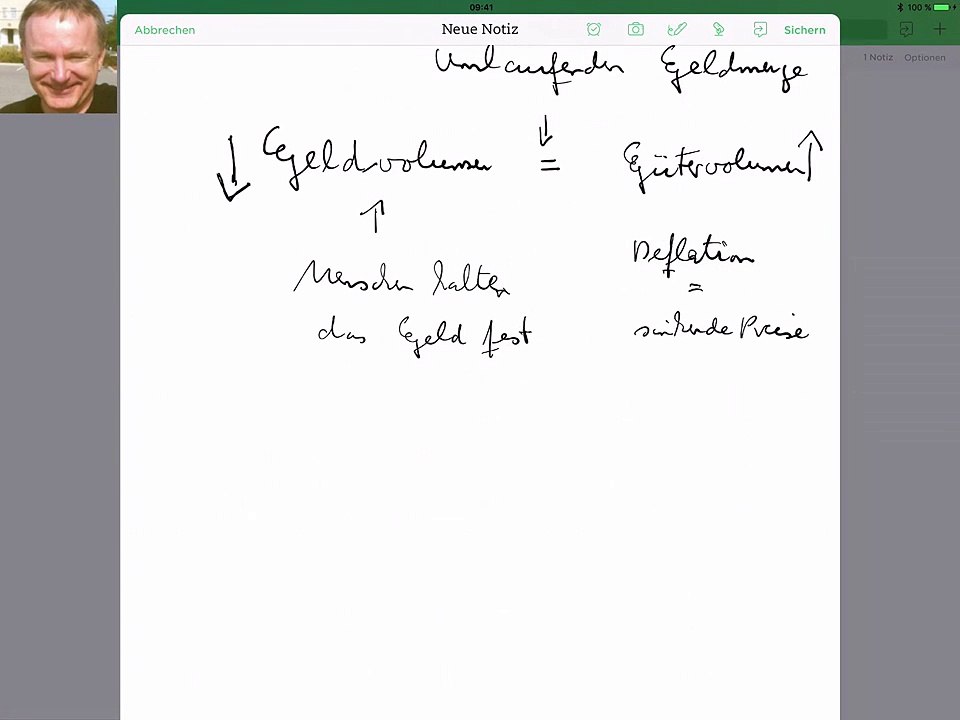 09:41
100 %
Abbrechen
Neue Notiz
Sichern
1 Notiz
Optionen
Umlaufenden Geldmenge
↓ Geldvolumen
↓
=
Gütervolumen ↑
↑
Menschen halten
das Geld fest
Deflation
=
sinkende Preise